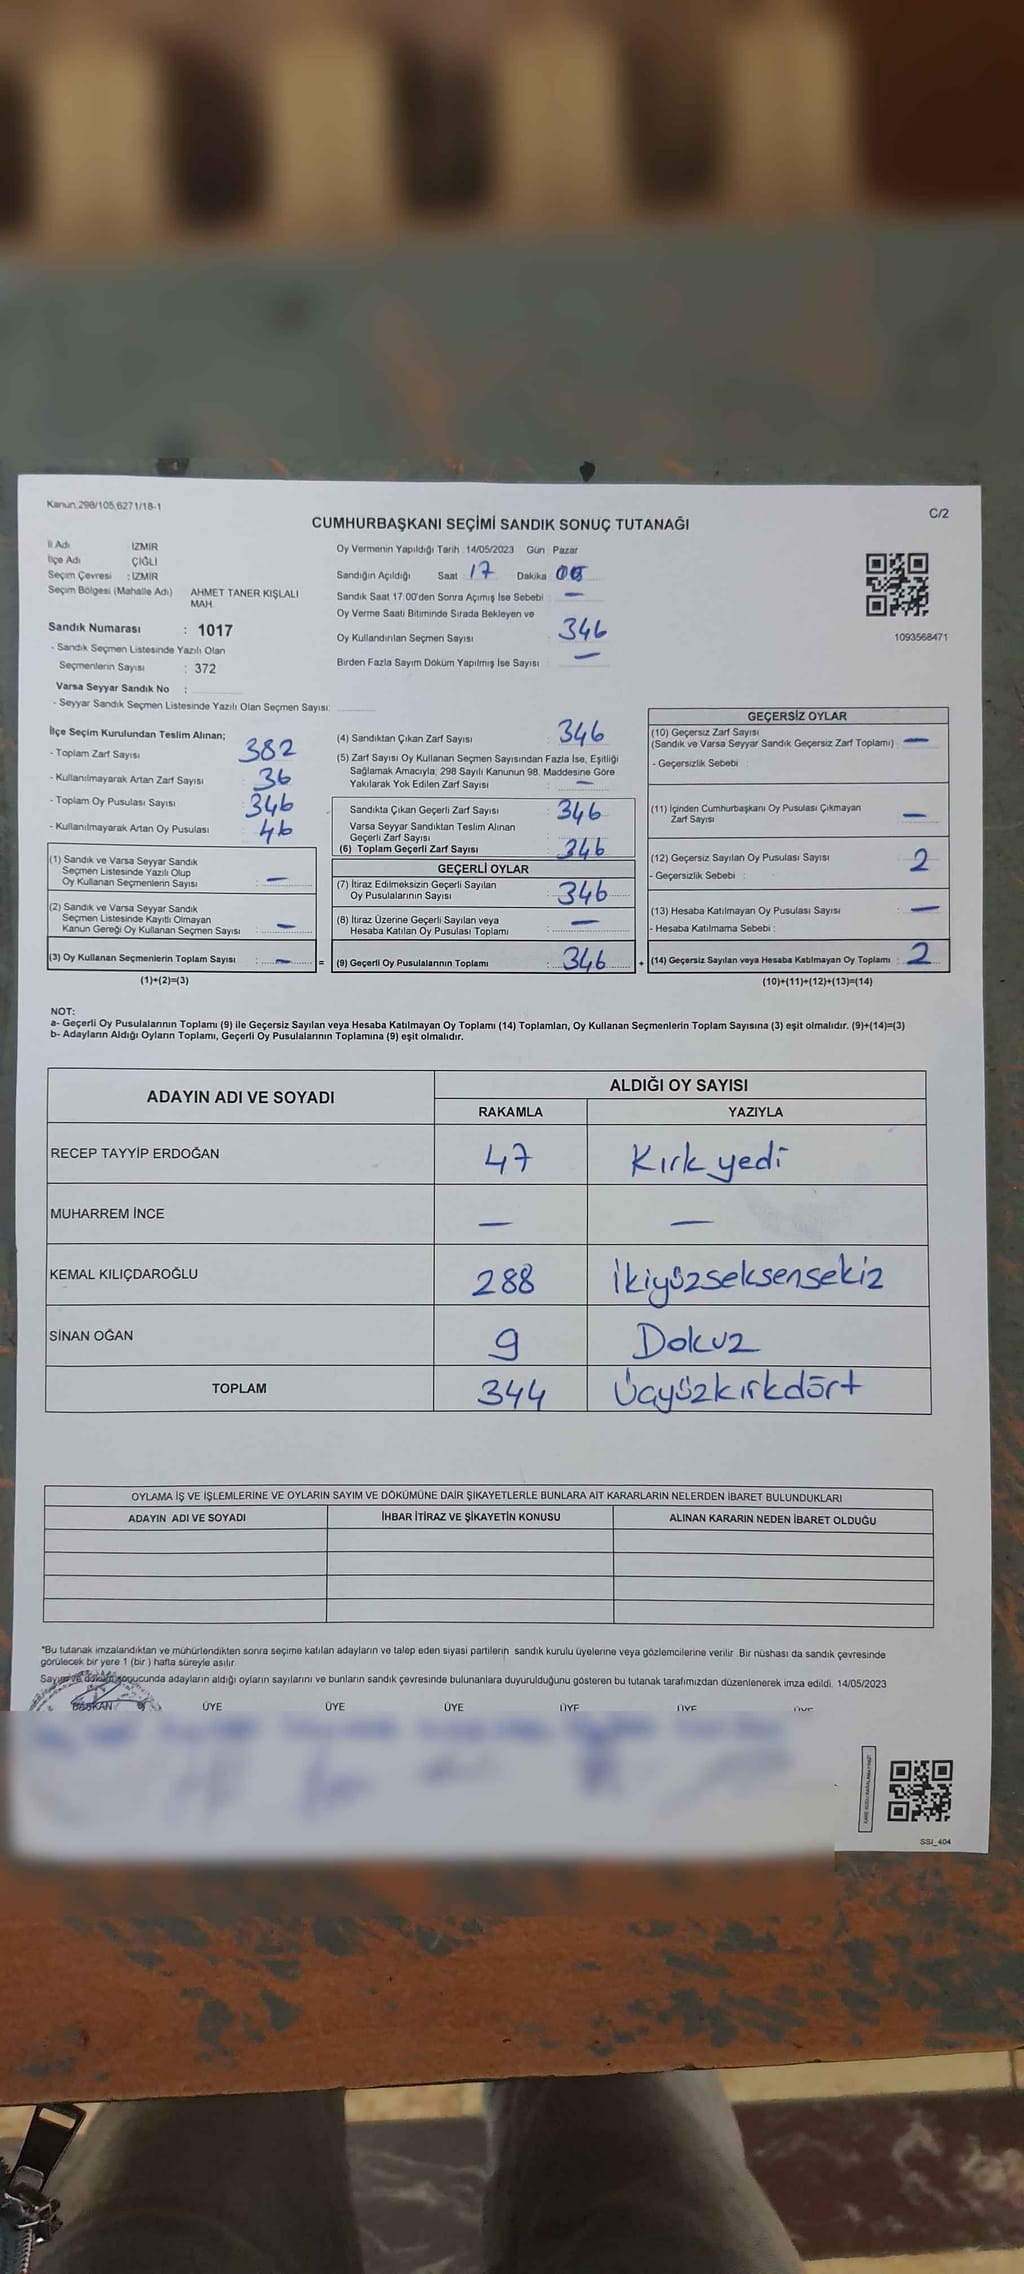 Kanun,298/105,6271/18-1
C/2
CUMHURBAŞKANI SEÇİMİ SANDIK SONUÇ TUTANAĞI
İl Adı İZMİR
İlçe Adı ÇİĞLİ
Seçim Çevresi : İZMİR
Seçim Bölgesi (Mahalle Adı) AHMET TANER KIŞLALI
MAH.
Sandık Numarası : 1017
- Sandık Seçmen Listesinde Yazılı Olan
Seçmenlerin Sayısı : 372
Varsa Seyyar Sandık No :
- Seyyar Sandık Seçmen Listesinde Yazılı Olan Seçmen Sayısı:
Oy Vermenin Yapıldığı Tarih 14/05/2023 Gün Pazar
Sandığın Açıldığı Saat 17 Dakika 05
Sandık Saat 17:00'den Sonra Açımış İse Sebebi : —
Oy Verme Saati Bitiminde Sırada Bekleyen ve
Oy Kullandırılan Seçmen Sayısı 346
Birden Fazla Sayım Döküm Yapılmış İse Sayısı : —
1093568471
İlçe Seçim Kurulundan Teslim Alınan;
- Toplam Zarf Sayısı 382
- Kullanılmayarak Artan Zarf Sayısı 36
- Toplam Oy Pusulası Sayısı 346
- Kullanılmayarak Artan Oy Pusulası 46
(1) Sandık ve Varsa Seyyar Sandık
Seçmen Listesinde Yazılı Olup
Oy Kullanan Seçmenlerin Sayısı : —
(2) Sandık ve Varsa Seyyar Sandık
Seçmen Listesinde Kayıtlı Olmayan
Kanun Gereği Oy Kullanan Seçmen Sayısı : —
(3) Oy Kullanan Seçmenlerin Toplam Sayısı : — =
(1)+(2)=(3)
(4) Sandıktan Çıkan Zarf Sayısı 346
(5) Zarf Sayısı Oy Kullanan Seçmen Sayısından Fazla İse, Eşitliği
Sağlamak Amacıyla; 298 Sayılı Kanunun 98. Maddesine Göre
Yakılarak Yok Edilen Zarf Sayısı : —
Sandıkta Çıkan Geçerli Zarf Sayısı : 346
Varsa Seyyar Sandıktan Teslim Alınan
Geçerli Zarf Sayısı
(6) Toplam Geçerli Zarf Sayısı : 346
GEÇERLİ OYLAR
(7) İtiraz Edilmeksizin Geçerli Sayılan
Oy Pusulalarının Sayısı : 346
(8) İtiraz Üzerine Geçerli Sayılan veya
Hesaba Katılan Oy Pusulası Toplamı : —
(9) Geçerli Oy Pusulalarının Toplamı : 346 +
GEÇERSİZ OYLAR
(10) Geçersiz Zarf Sayısı
(Sandık ve Varsa Seyyar Sandık Geçersiz Zarf Toplamı) : —
- Geçersizlik Sebebi :
(11) İçinden Cumhurbaşkanı Oy Pusulası Çıkmayan
Zarf Sayısı —
(12) Geçersiz Sayılan Oy Pusulası Sayısı 2
- Geçersizlik Sebebi :
(13) Hesaba Katılmayan Oy Pusulası Sayısı : —
- Hesaba Katılmama Sebebi :
(14) Geçersiz Sayılan veya Hesaba Katılmayan Oy Toplamı : 2
(10)+(11)+(12)+(13)=(14)
NOT:
a- Geçerli Oy Pusulalarının Toplamı (9) ile Geçersiz Sayılan veya Hesaba Katılmayan Oy Toplamı (14) Toplamları, Oy Kullanan Seçmenlerin Toplam Sayısına (3) eşit olmalıdır. (9)+(14)=(3)
b- Adayların Aldığı Oyların Toplamı, Geçerli Oy Pusulalarının Toplamına (9) eşit olmalıdır.
ADAYIN ADI VE SOYADI
ALDIĞI OY SAYISI
RAKAMLA YAZIYLA
RECEP TAYYİP ERDOĞAN 47 Kırk yedi
MUHARREM İNCE — —
KEMAL KILIÇDAROĞLU 288 İkiyüzseksensekiz
SİNAN OĞAN 9 Dokuz
TOPLAM 344 Üçyüzkırkdört
OYLAMA İŞ VE İŞLEMLERİNE VE OYLARIN SAYIM VE DÖKÜMÜNE DAİR ŞİKAYETLERLE BUNLARA AİT KARARLARIN NELERDEN İBARET BULUNDUKLARI
ADAYIN ADI VE SOYADI İHBAR İTİRAZ VE ŞİKAYETİN KONUSU ALINAN KARARIN NEDEN İBARET OLDUĞU
*Bu tutanak imzalandıktan ve mühürlendikten sonra seçime katılan adayların ve talep eden siyasi partilerin sandık kurulu üyelerine veya gözlemcilerine verilir. Bir nüshası da sandık çevresinde
görülecek bir yere 1 (bir ) hafta süreyle asılır.
Sayım ve döküm sonucunda adayların aldığı oyların sayılarını ve bunların sandık çevresinde bulunanlara duyurulduğunu gösteren bu tutanak tarafımızdan düzenlenerek imza edildi. 14/05/2023
BAŞKAN ÜYE ÜYE ÜYE ÜYE ÜYE ÜYE
SSI_404